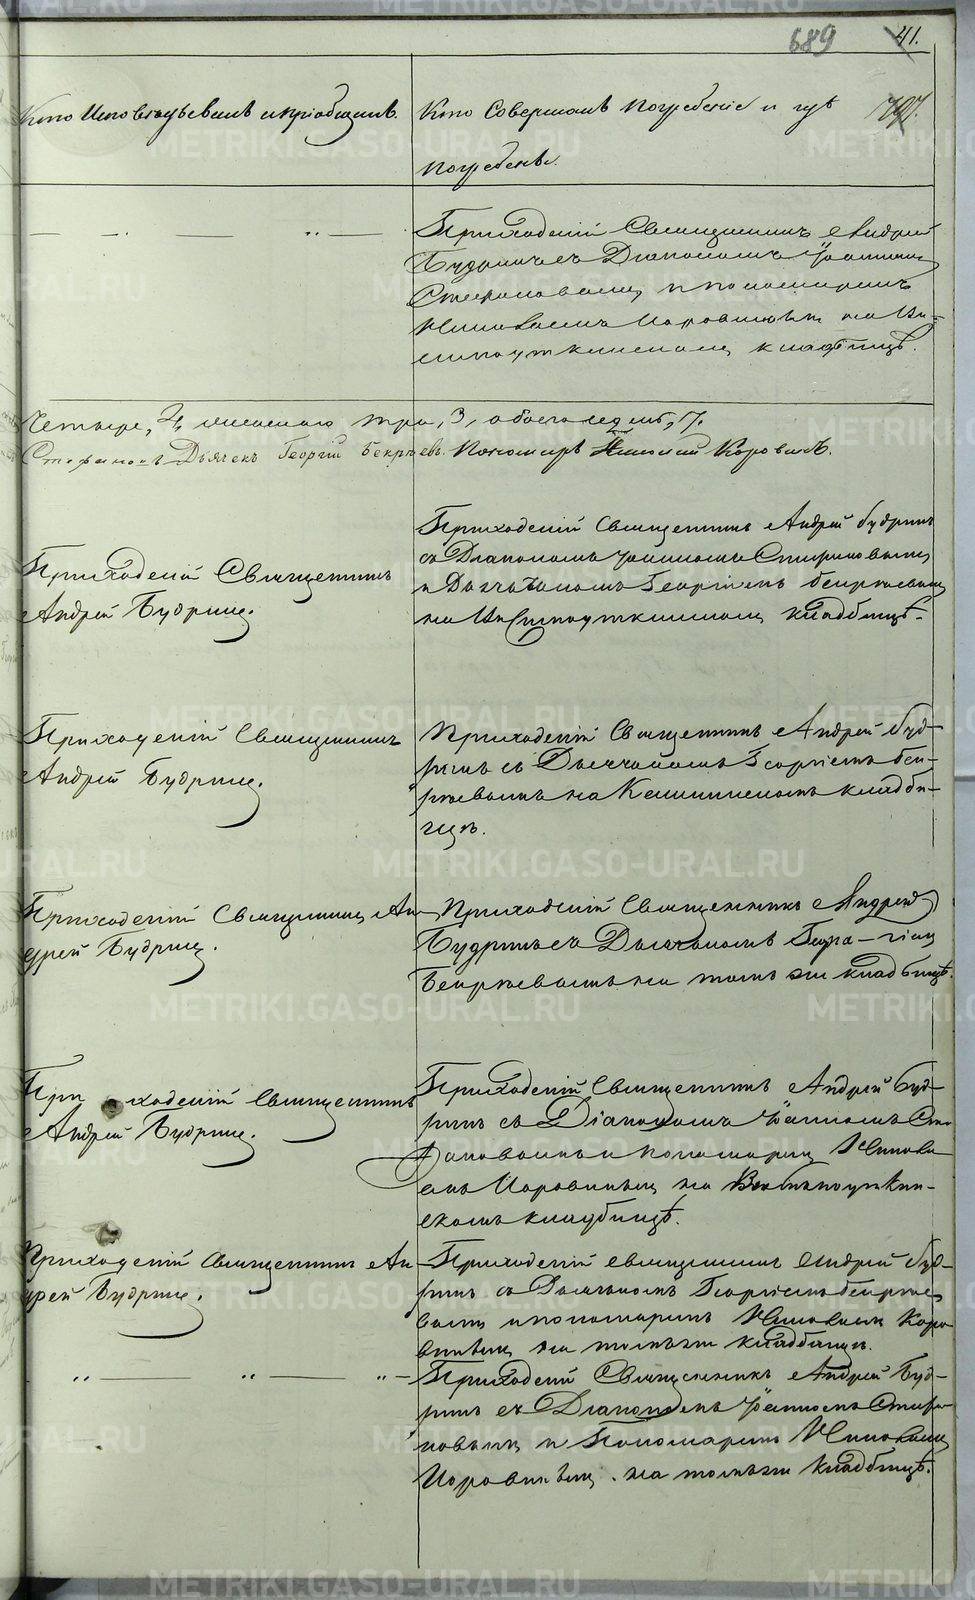 689 41.
Кто Исповѣдывалъ и пріобщалъ.
Кто Совершалъ Погребеніе и гдѣ 797.
погребенъ.
Приходскій Священникъ Андрей
Будринъ съ Діакономъ Іоанном
Стефановымъ и пономаремъ
Николаемъ Коровинымъ на
кладбищѣ.
Четыре, 4, женскаго три, 3, обоего седмь, 7.
Стефановъ Дьячекъ Георгій Бекряевъ. Пономарь Николай Коровинъ.
Приходскій Священникъ
Андрей Будринъ.
Приходскій Священникъ Андрей Будринъ
съ Діакономъ Іоанномъ Стефановымъ
и Дьячькомъ Георгіемъ
на кладбищѣ.
Приходскій Священникъ
Андрей Будринъ.
Приходскій Священникъ Андрей Буд-
ринъ съ Дьячькомъ Георгіемъ Бек-
ряевымъ на кладби-
щѣ.
Приходскій Священникъ Ан-
дрей Будринъ.
Приходскій Священникъ Андрей
Будринъ съ Дьячькомъ Геор-гіем
Бекряевымъ на томъ же кладбищѣ.
При ходскій Священникъ
Андрей Будринъ.
Приходскій Священникъ Андрей Буд-
ринъ съ Діакономъ Іоанномъ Сте
фановымъ и пономарем Никола
емъ Коровинымъ на
скомъ кладбищѣ.
Приходскій Священникъ Ан-
дрей Будринъ.
Приходскій священникъ Андрей Буд-
ринъ съ Дьячькомъ Георгіемъ Бекряе
вымъ и пономаремъ Николаем Коро
винымъ на томъ же кладбищѣ.
Приходскій Священникъ Андрей Буд-
ринъ съ Діакономъ Іоанномъ Стефа
новымъ и Пономаремъ Николаемъ
Коровинымъ на томъ же кладбищѣ.
METRIKI.GASO-URAL.RU